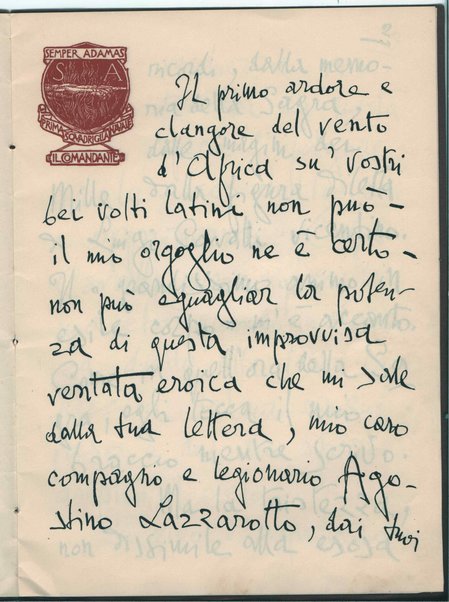 2
SEMPER ADAMAS
S A
PRIMA SQUADRIGLIA NAVALE
IL COMANDANTE
Il primo ardore e
clangore del vento
d'Africa su' vostri
bei volti latini non può -
il mio orgoglio ne è certo -
non può eguagliar la poten-
za di questa improvvisa
ventata eroica che mi sale
dalla tua lettera, mio caro
compagno e legionario Ago-
stino Lazzarotto, dai tuoi